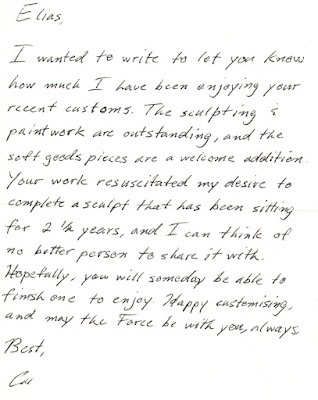 Elias,
I wanted to write to let you know
how much I have been enjoying your
recent customs. The sculpting &
paintwork are outstanding, and the
soft goods pieces are a welcome addition.
Your work resuscitated my desire to
complete a sculpt that has been sitting
for 2 ½ years, and I can think of
no better person to share it with.
Hopefully, you will someday be able to
finish one to enjoy. Happy customising,
and may the Force be with you, always.
Best,